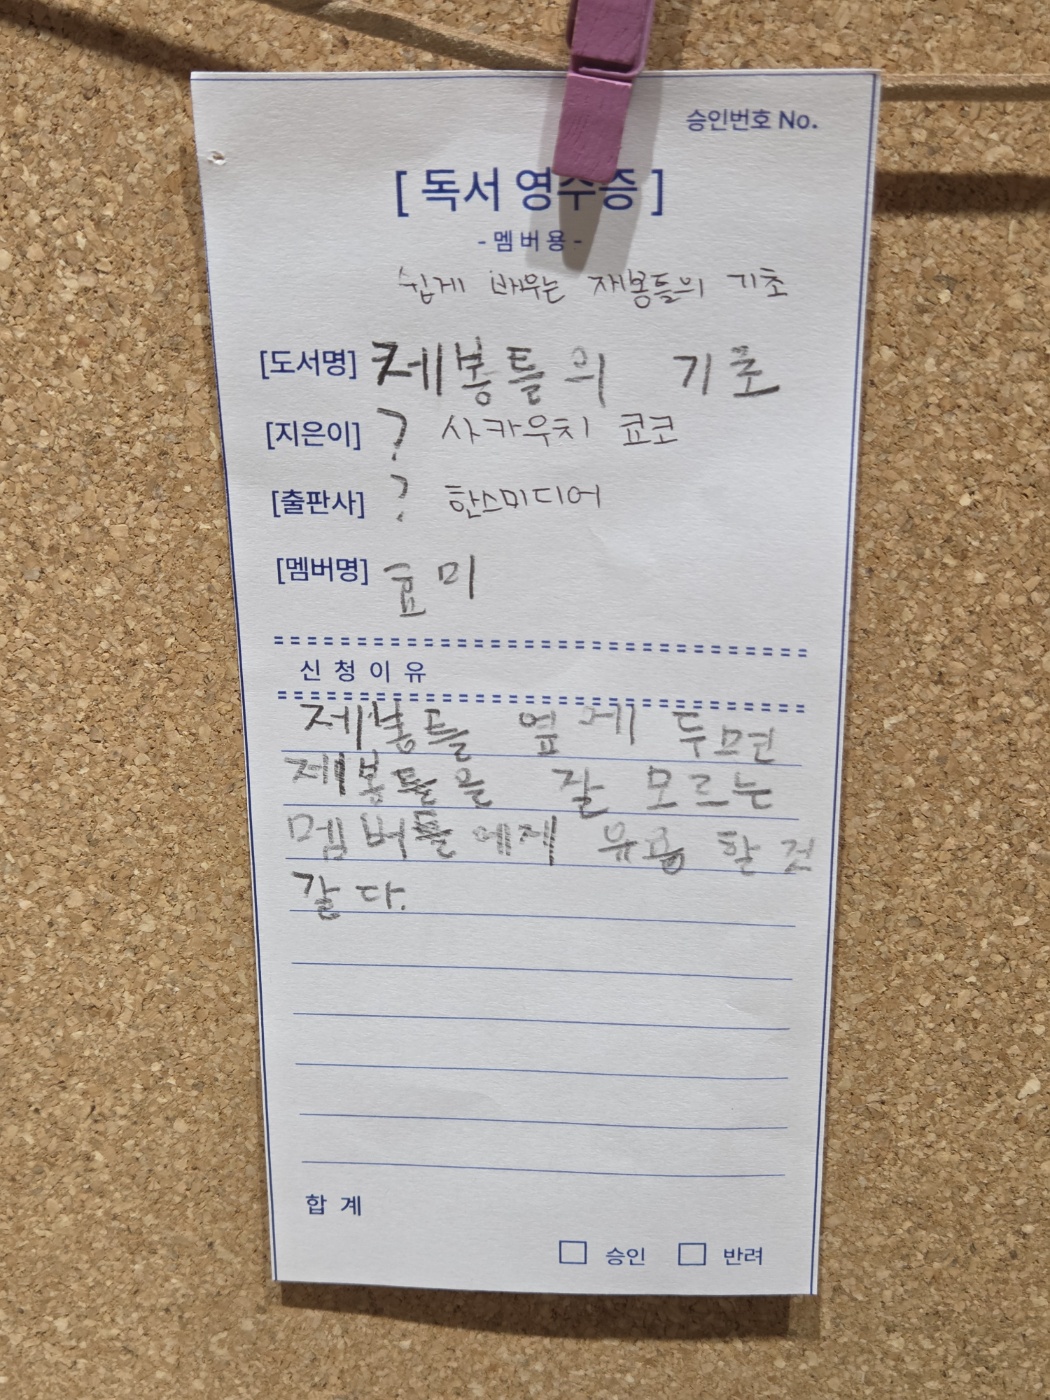 승인번호 No.
[ 독서 영수증 ]
- 멤버용 -
쉽게 배우는 재봉틀의 기초
[도서명] 제봉틀의 기초
[지은이] ? 사카우치 쿄코
[출판사] ? 한스미디어
[멤버명] 효미
신청이유
제봉틀 옆에 두면
제봉틀을 잘 모르는
멤버들에게 유용 할 것
같다.
합 계
승인 반려